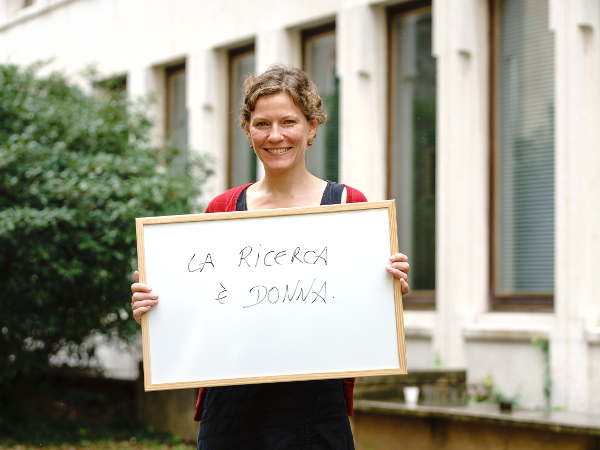 LA RICERCA
È DONNA.